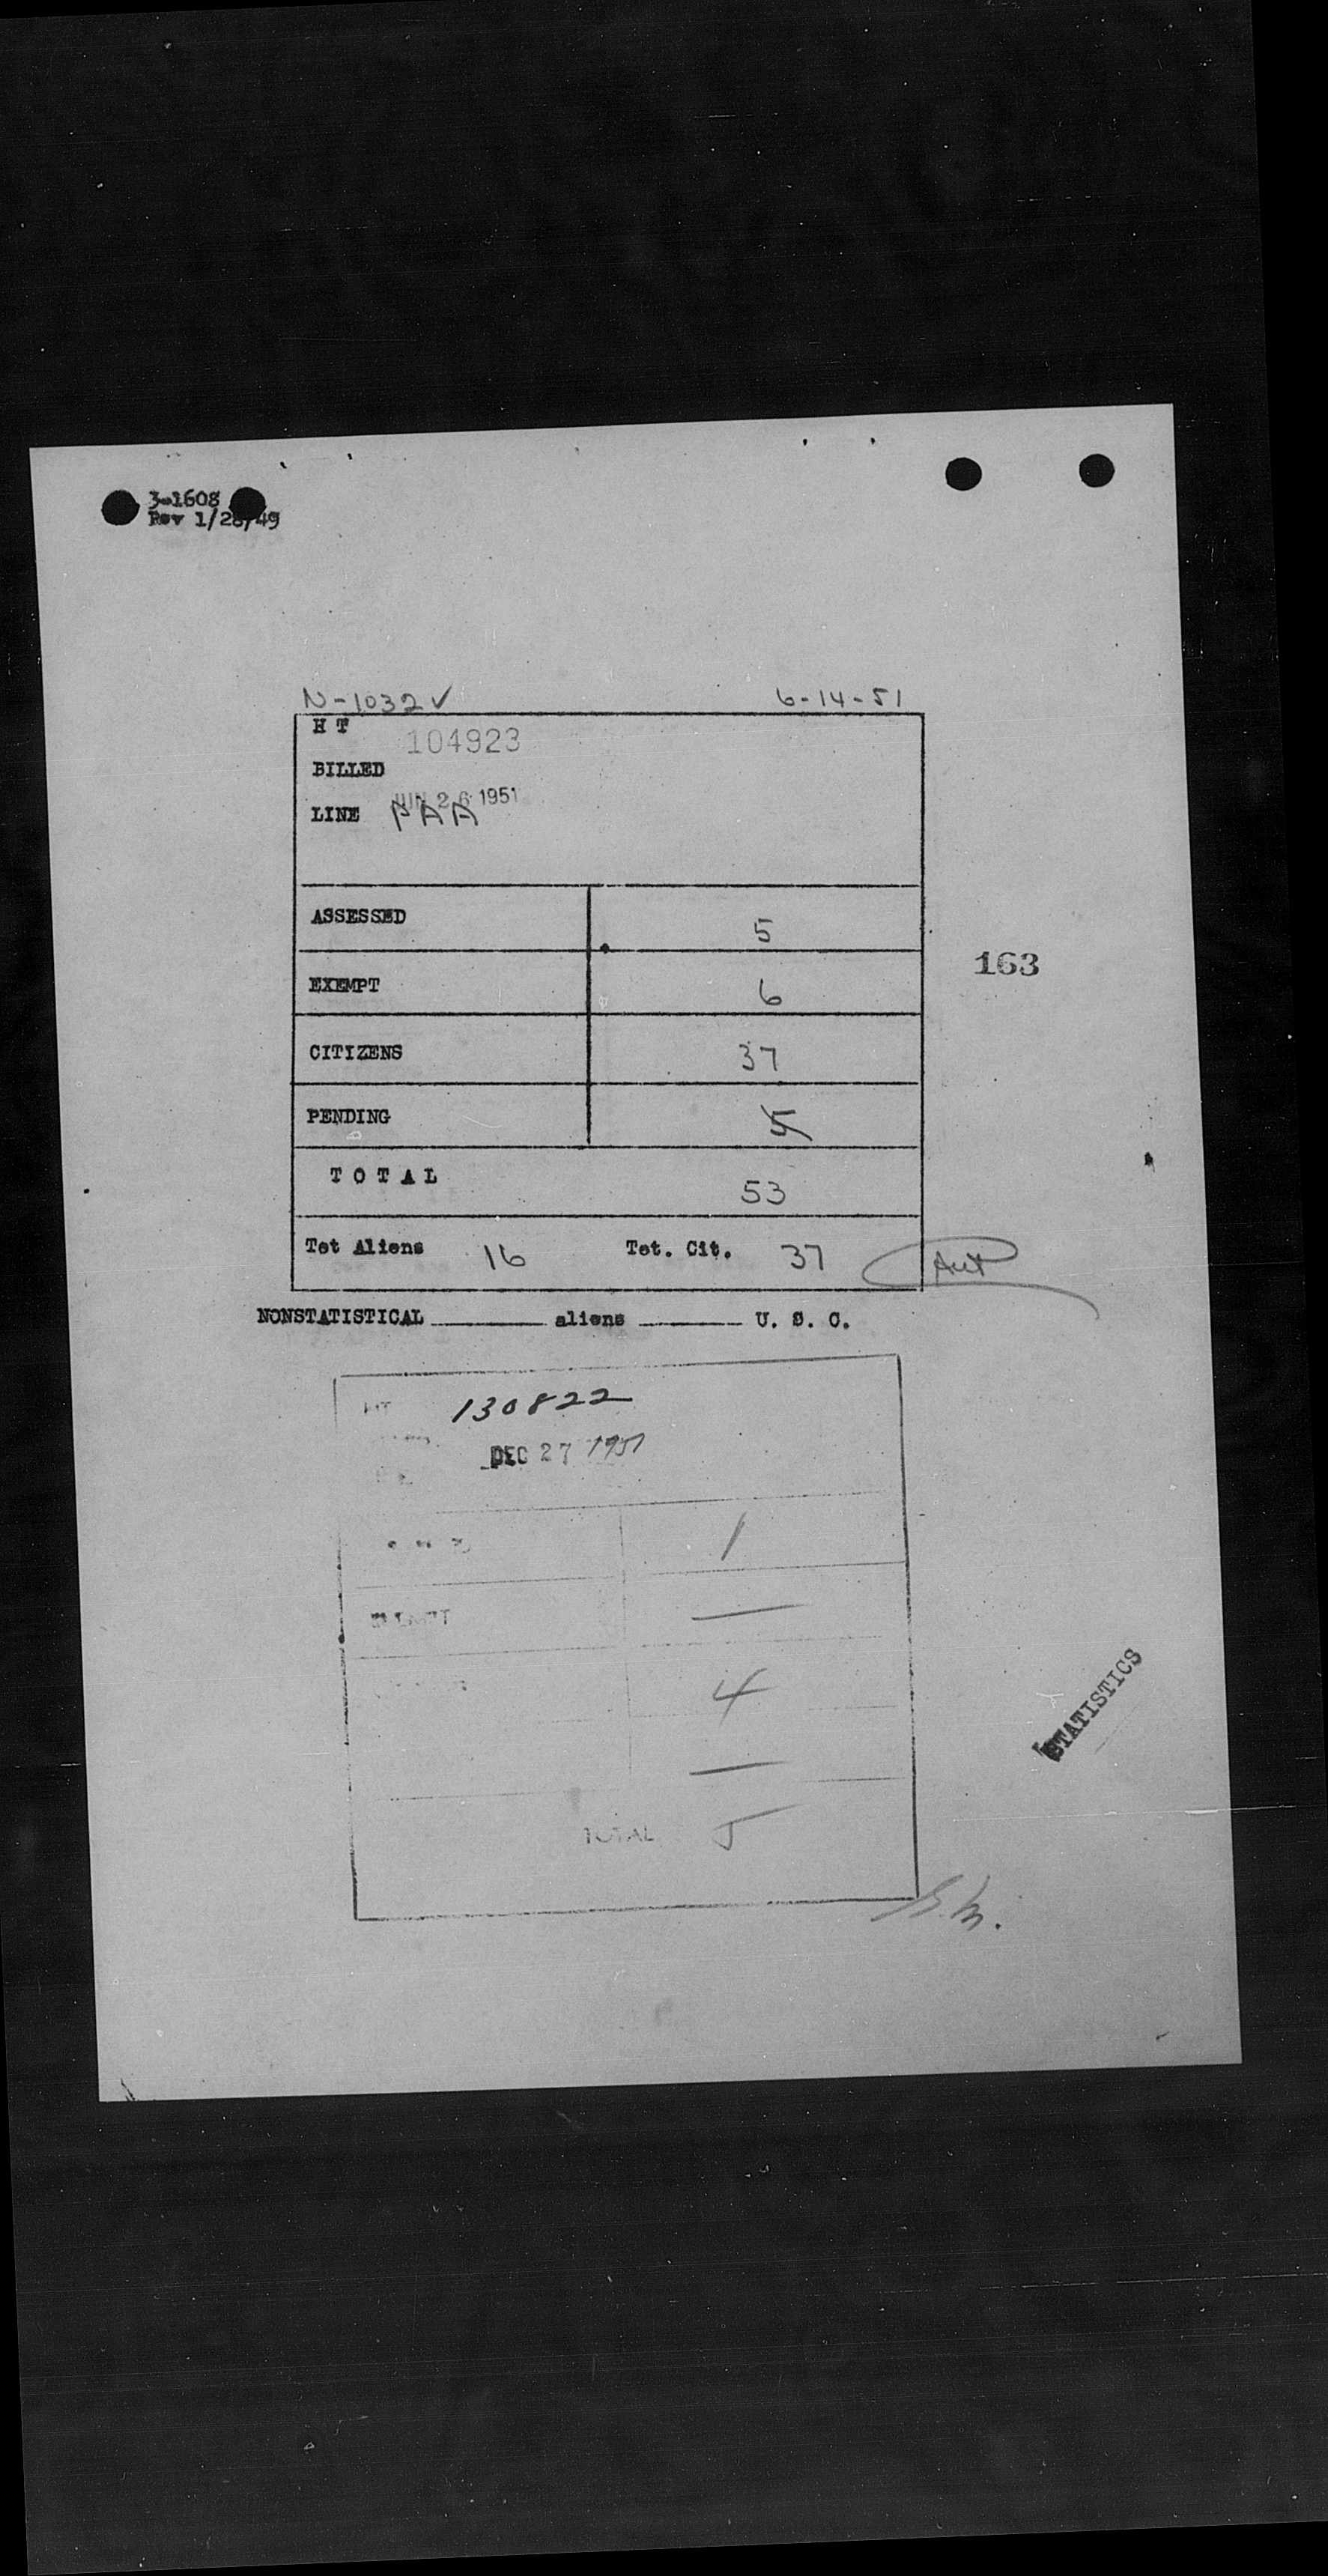 3-1608
Rev 1/28/49
N-1032✓ 6-14-51
H T 104923
BILLED
JUN 26 1951
LINE PAA
ASSESSED 5
163
EXEMPT 6
CITIZENS 37
PENDING 5
T O T A L 53
Tot Aliens 16 Tot. Cit. 37
NONSTATISTICAL ______ aliens ______ U. S. C.
HT 130822
DEC 27 1951
1
EXEMPT —
4
—
TOTAL 5
STATISTICS